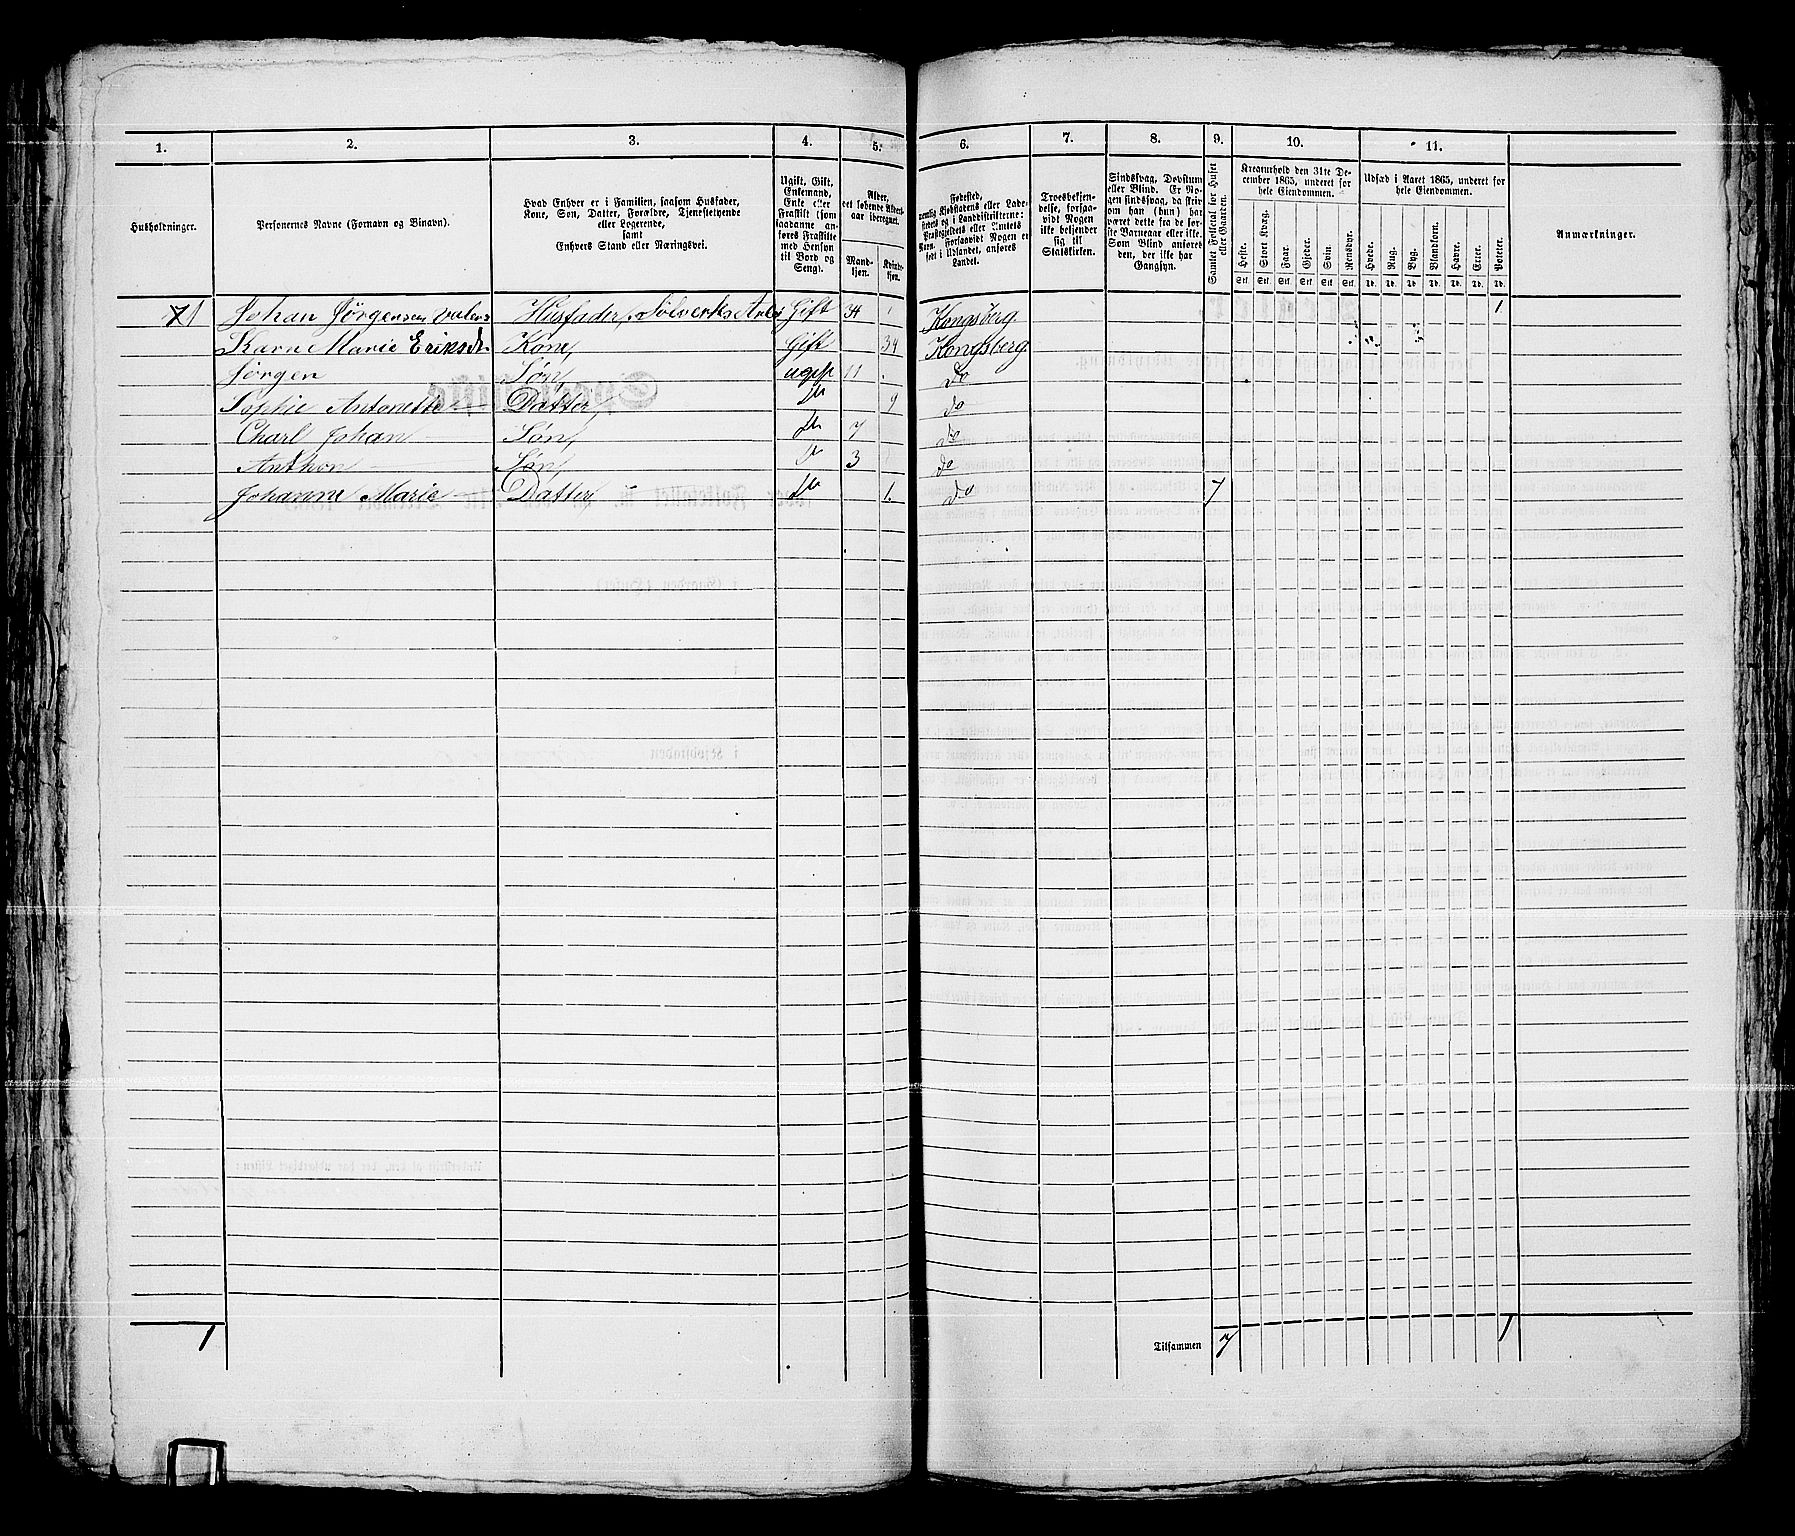 1. 2. 3. 4. 5. 6. 7. 8. 9. 10. 11.
Husholdninger.
Personernes Navne (Fornavn og Binavn).
Hvad Enhver er i Familien, saasom Husfader,
Kone, Søn, Datter, Forældre, Tjenestetyende
eller Logerende,
samt
Enhvers Stand eller Næringsvei.
Ugift, Gift,
Enkemand,
Enke eller
Fraskilt (som
saadanne an-
føres Fraskilte
med Hensyn
til Bord og
Seng).
Alder,
det løbende Alders-
aar iberegnet.
Mand-
kjøn.
Kvinde-
kjøn.
Fødested,
nemlig Kjøbstadens eller Lade-
stedets og i Landdistrikterne:
Præstegjeldets eller Sognets
Navn. Forsaavidt Nogen er
født i Udlandet, anføres
Landet.
Troesbekjen-
delse, forsaa-
vidt Nogen
ikke bekjender
sig til
Statskirken.
Sindssvag, Døvstum
eller Blind. Er No-
gen sindssvag, da skriv
om han (hun) har
været dette fra de før-
ste Barneaar eller ikke.
Som Blind anføres
den, der ikke har
Gangsyn.
Samlet Folketal for Huset
eller Gaarden.
Kreaturhold den 31te De-
cember 1865, underet for
hele Eiendommen.
Heste. Stort Kvæg. Faar. Gjeder. Svin. Rensdyr.
Stk. Stk. Stk. Stk. Stk. Stk.
Udsæd i Aaret 1865, underet for
hele Eiendommen.
Hvede. Rug. Byg. Blandkorn. Havre. Erter. Poteter.
Td. Td. Td. Td. Td. Td. Td.
Anmærkninger.
1 Johan Jørgensen Husfader, Sølverks Arb Gift 34 Kongsberg. 1
Karn Marie Eriksdr Kone, Gift 34 Kongsberg.
Jørgen Søn, ugift 11 do
Sophie Antonette Datter, do 9 do
Charl Johan Søn, do 7 do
Anthon Søn do 3 do
Johanne Marie Datter do 1. do 7
1 Tilsammen 7 1